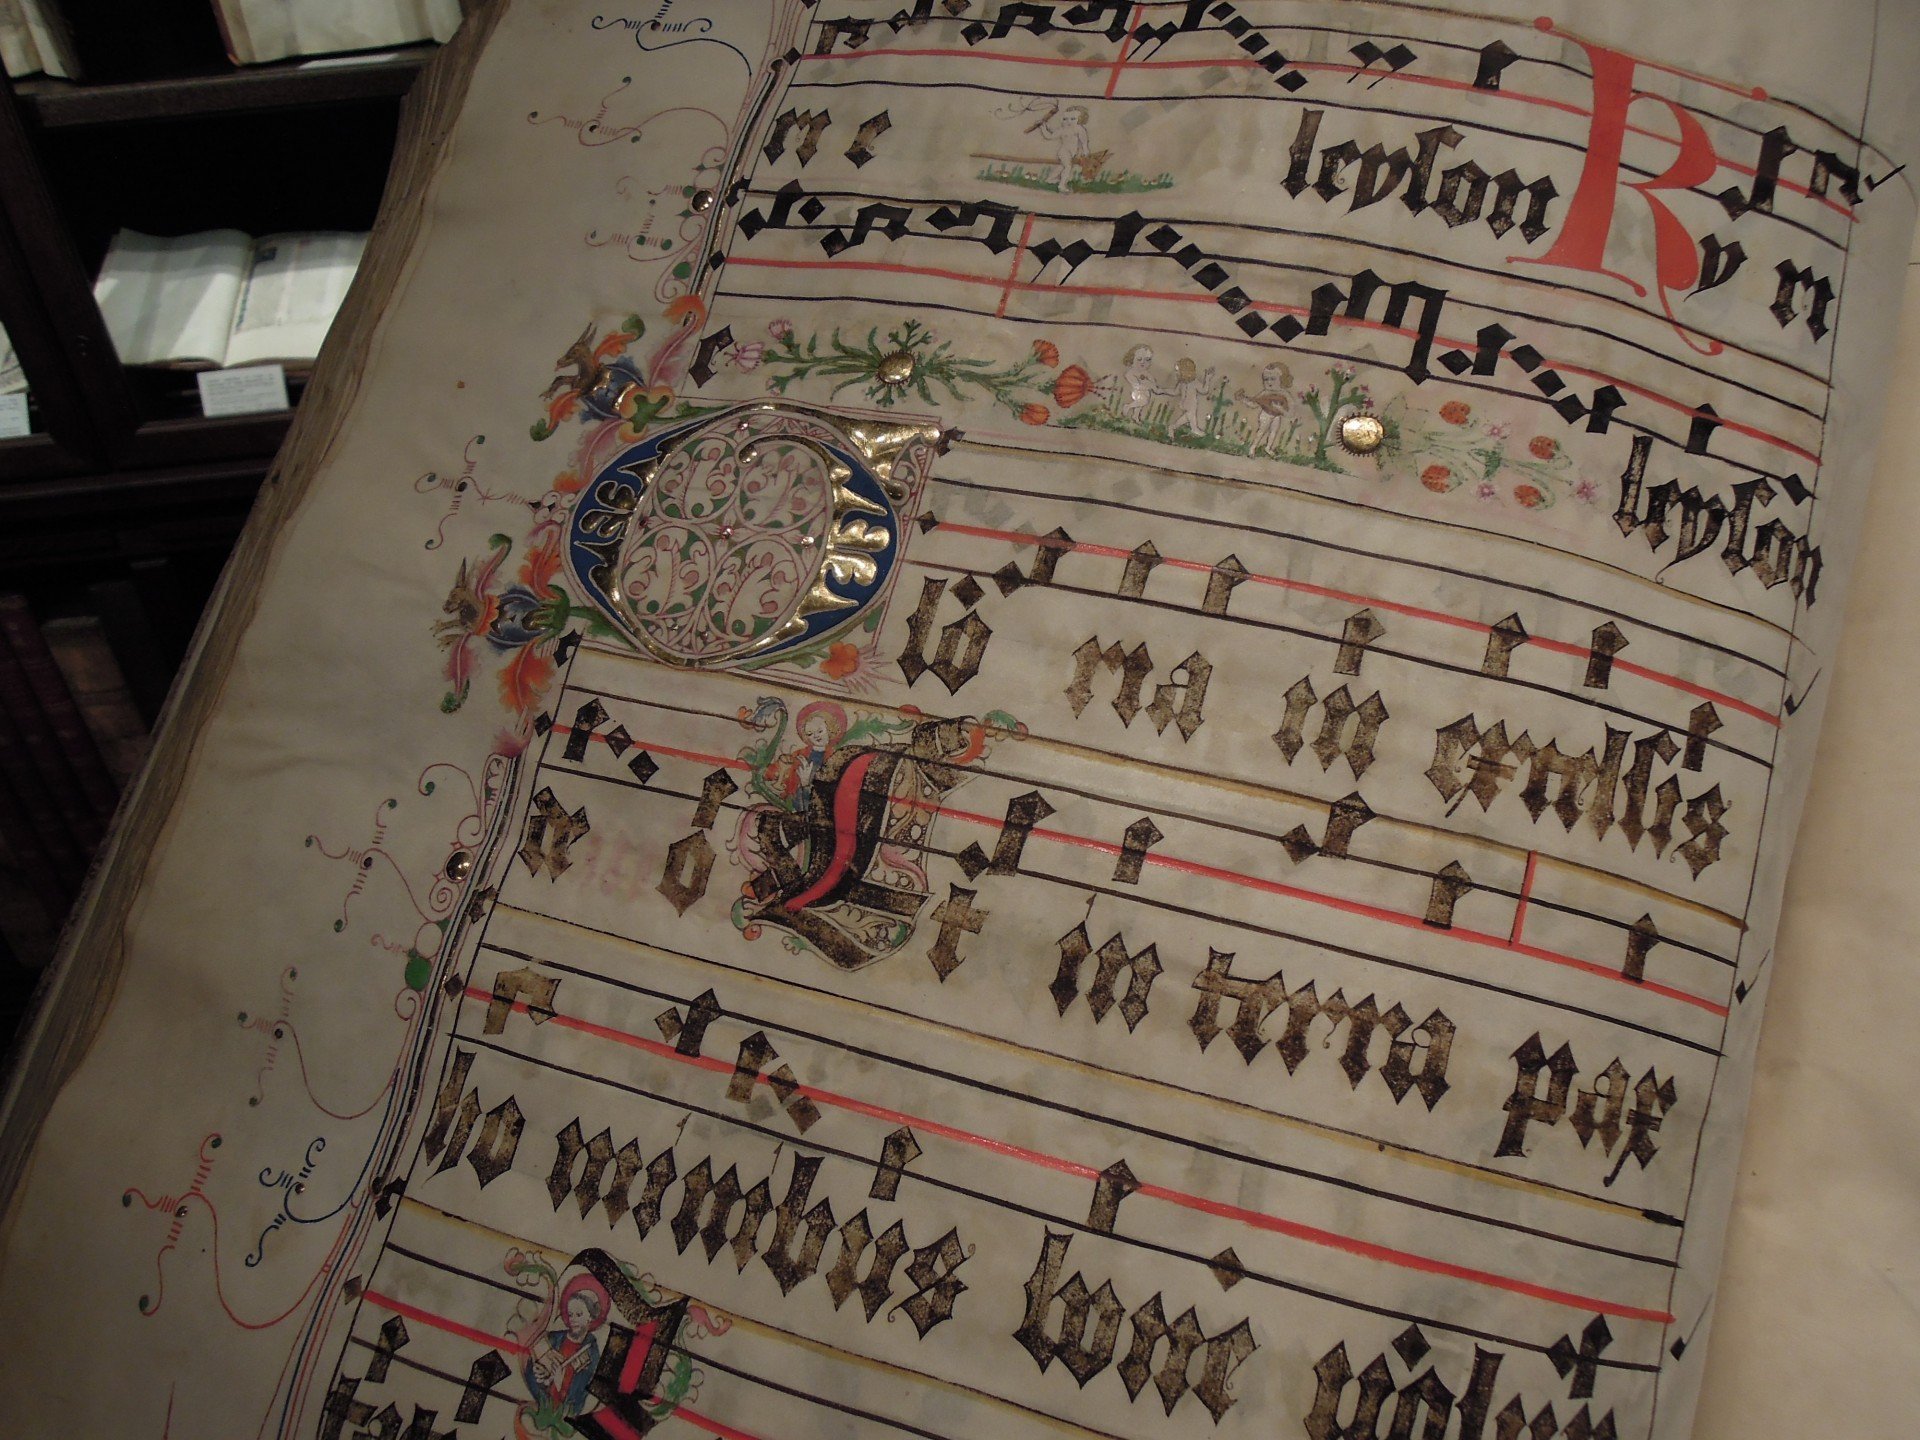 ri e leyson Ky ri
e leyson
Glo ria in excelsis
de o Et in terra pax
ho minibus bone volun